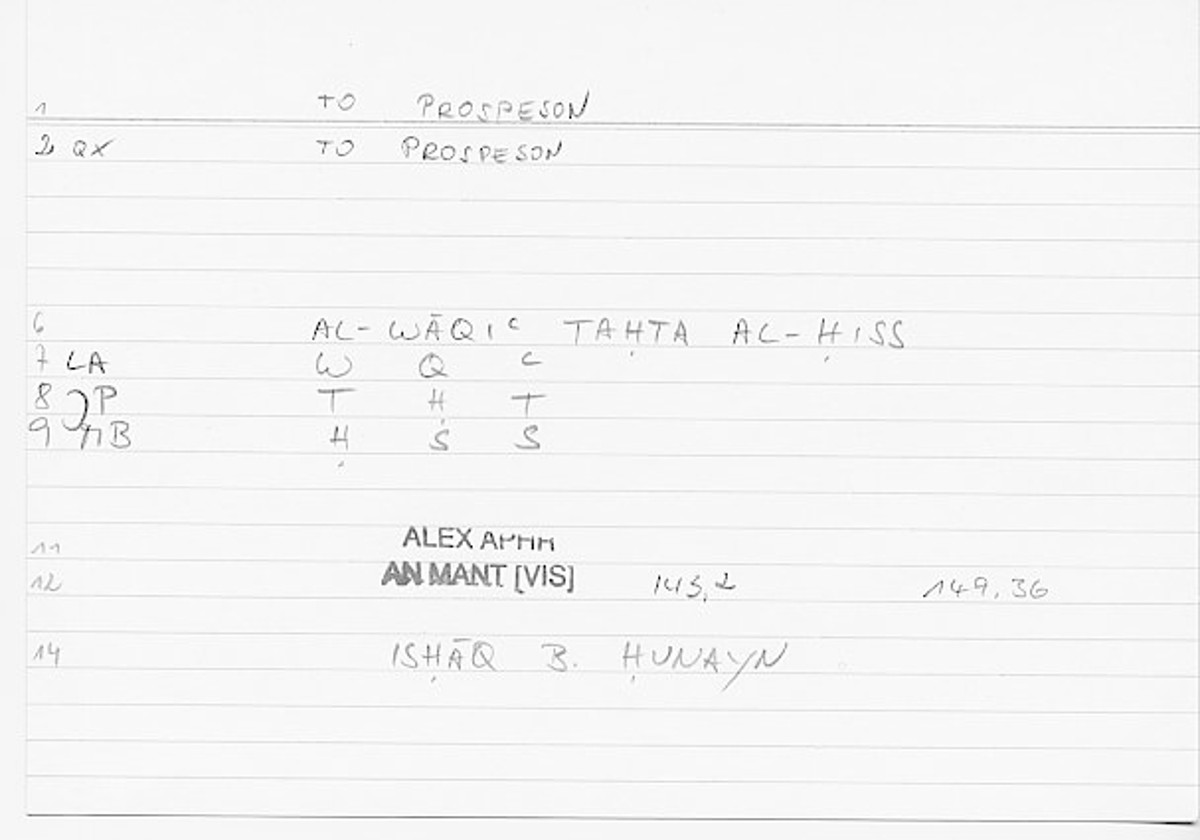 1 TO PROSPESON
2 QX TO PROSPESON
6 AL-WĀQIC TAḤTA AL-ḤISS
7 LA W Q C
8 P T Ḥ T
9 B Ḥ S S
11 ALEX APHR
12 AN MANT [VIS] 145,2 149.36
14 ISḤĀQ B. ḤUNAYN